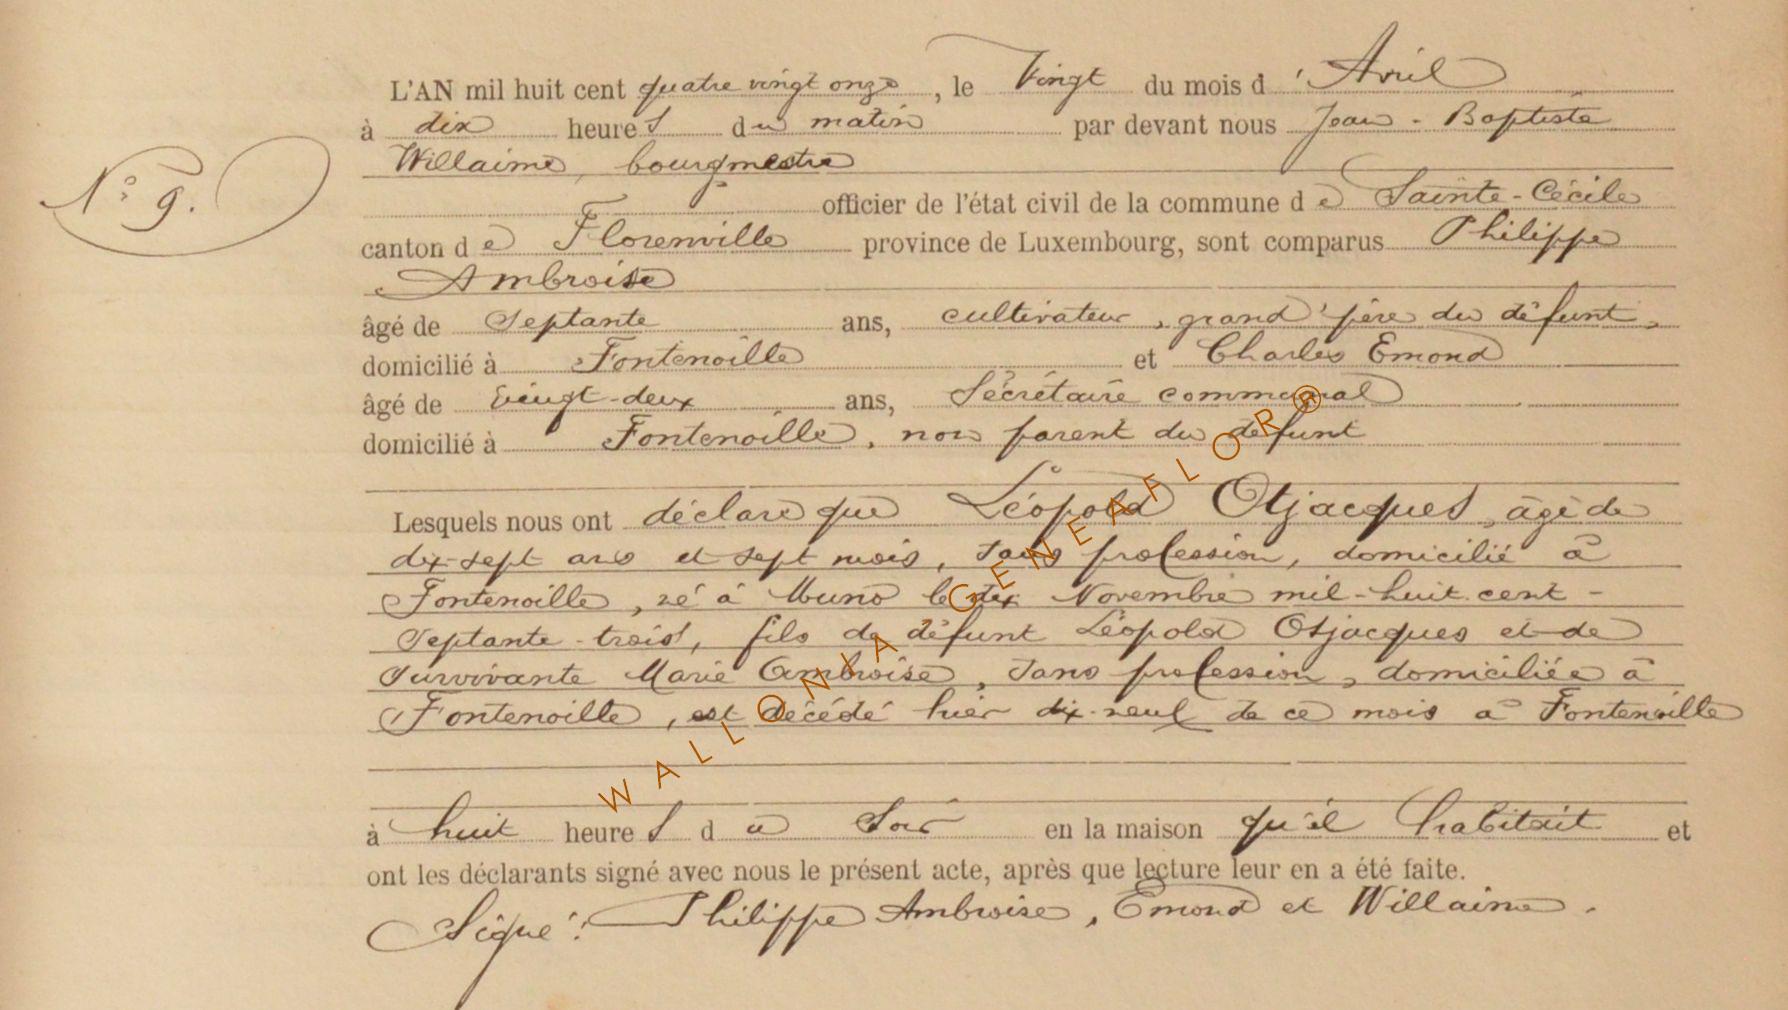 L'AN mil huit cent quatre vingt onze, le Vingt du mois d'Avril
à dix heures du matin par devant nous Jean-Baptiste
N° 9.
Willaime, bourgmestre
officier de l'état civil de la commune de Sainte-Cécile
canton de Florenville province de Luxembourg, sont comparus Philippe
Ambroise
âgé de Septante ans, cultivateur, grand'père du défunt,
domicilié à Fontenoille et Charles Emond
âgé de vingt-deux ans, Sécrétaire communal
domicilié à Fontenoille, non parent du défunt
Lesquels nous ont déclaré que Léopold Otjacques, âgé de
dix-sept ans et sept mois, sans profession, domicilié à
Fontenoille, né à Muno le dix Novembre mil-huit cent-
septante-trois, fils de défunt Léopold Otjacques et de
survivante Marie Ambroise, sans profession, domiciliée à
Fontenoille, est décédé hier dix-neuf de ce mois à Fontenoille
à huit heures du Soir en la maison qu'il habitait et
ont les déclarants signé avec nous le présent acte, après que lecture leur en a été faite.
Signé: Philippe Ambroise, Emond et Willaime.
WALLONIA GENEAFLOR®